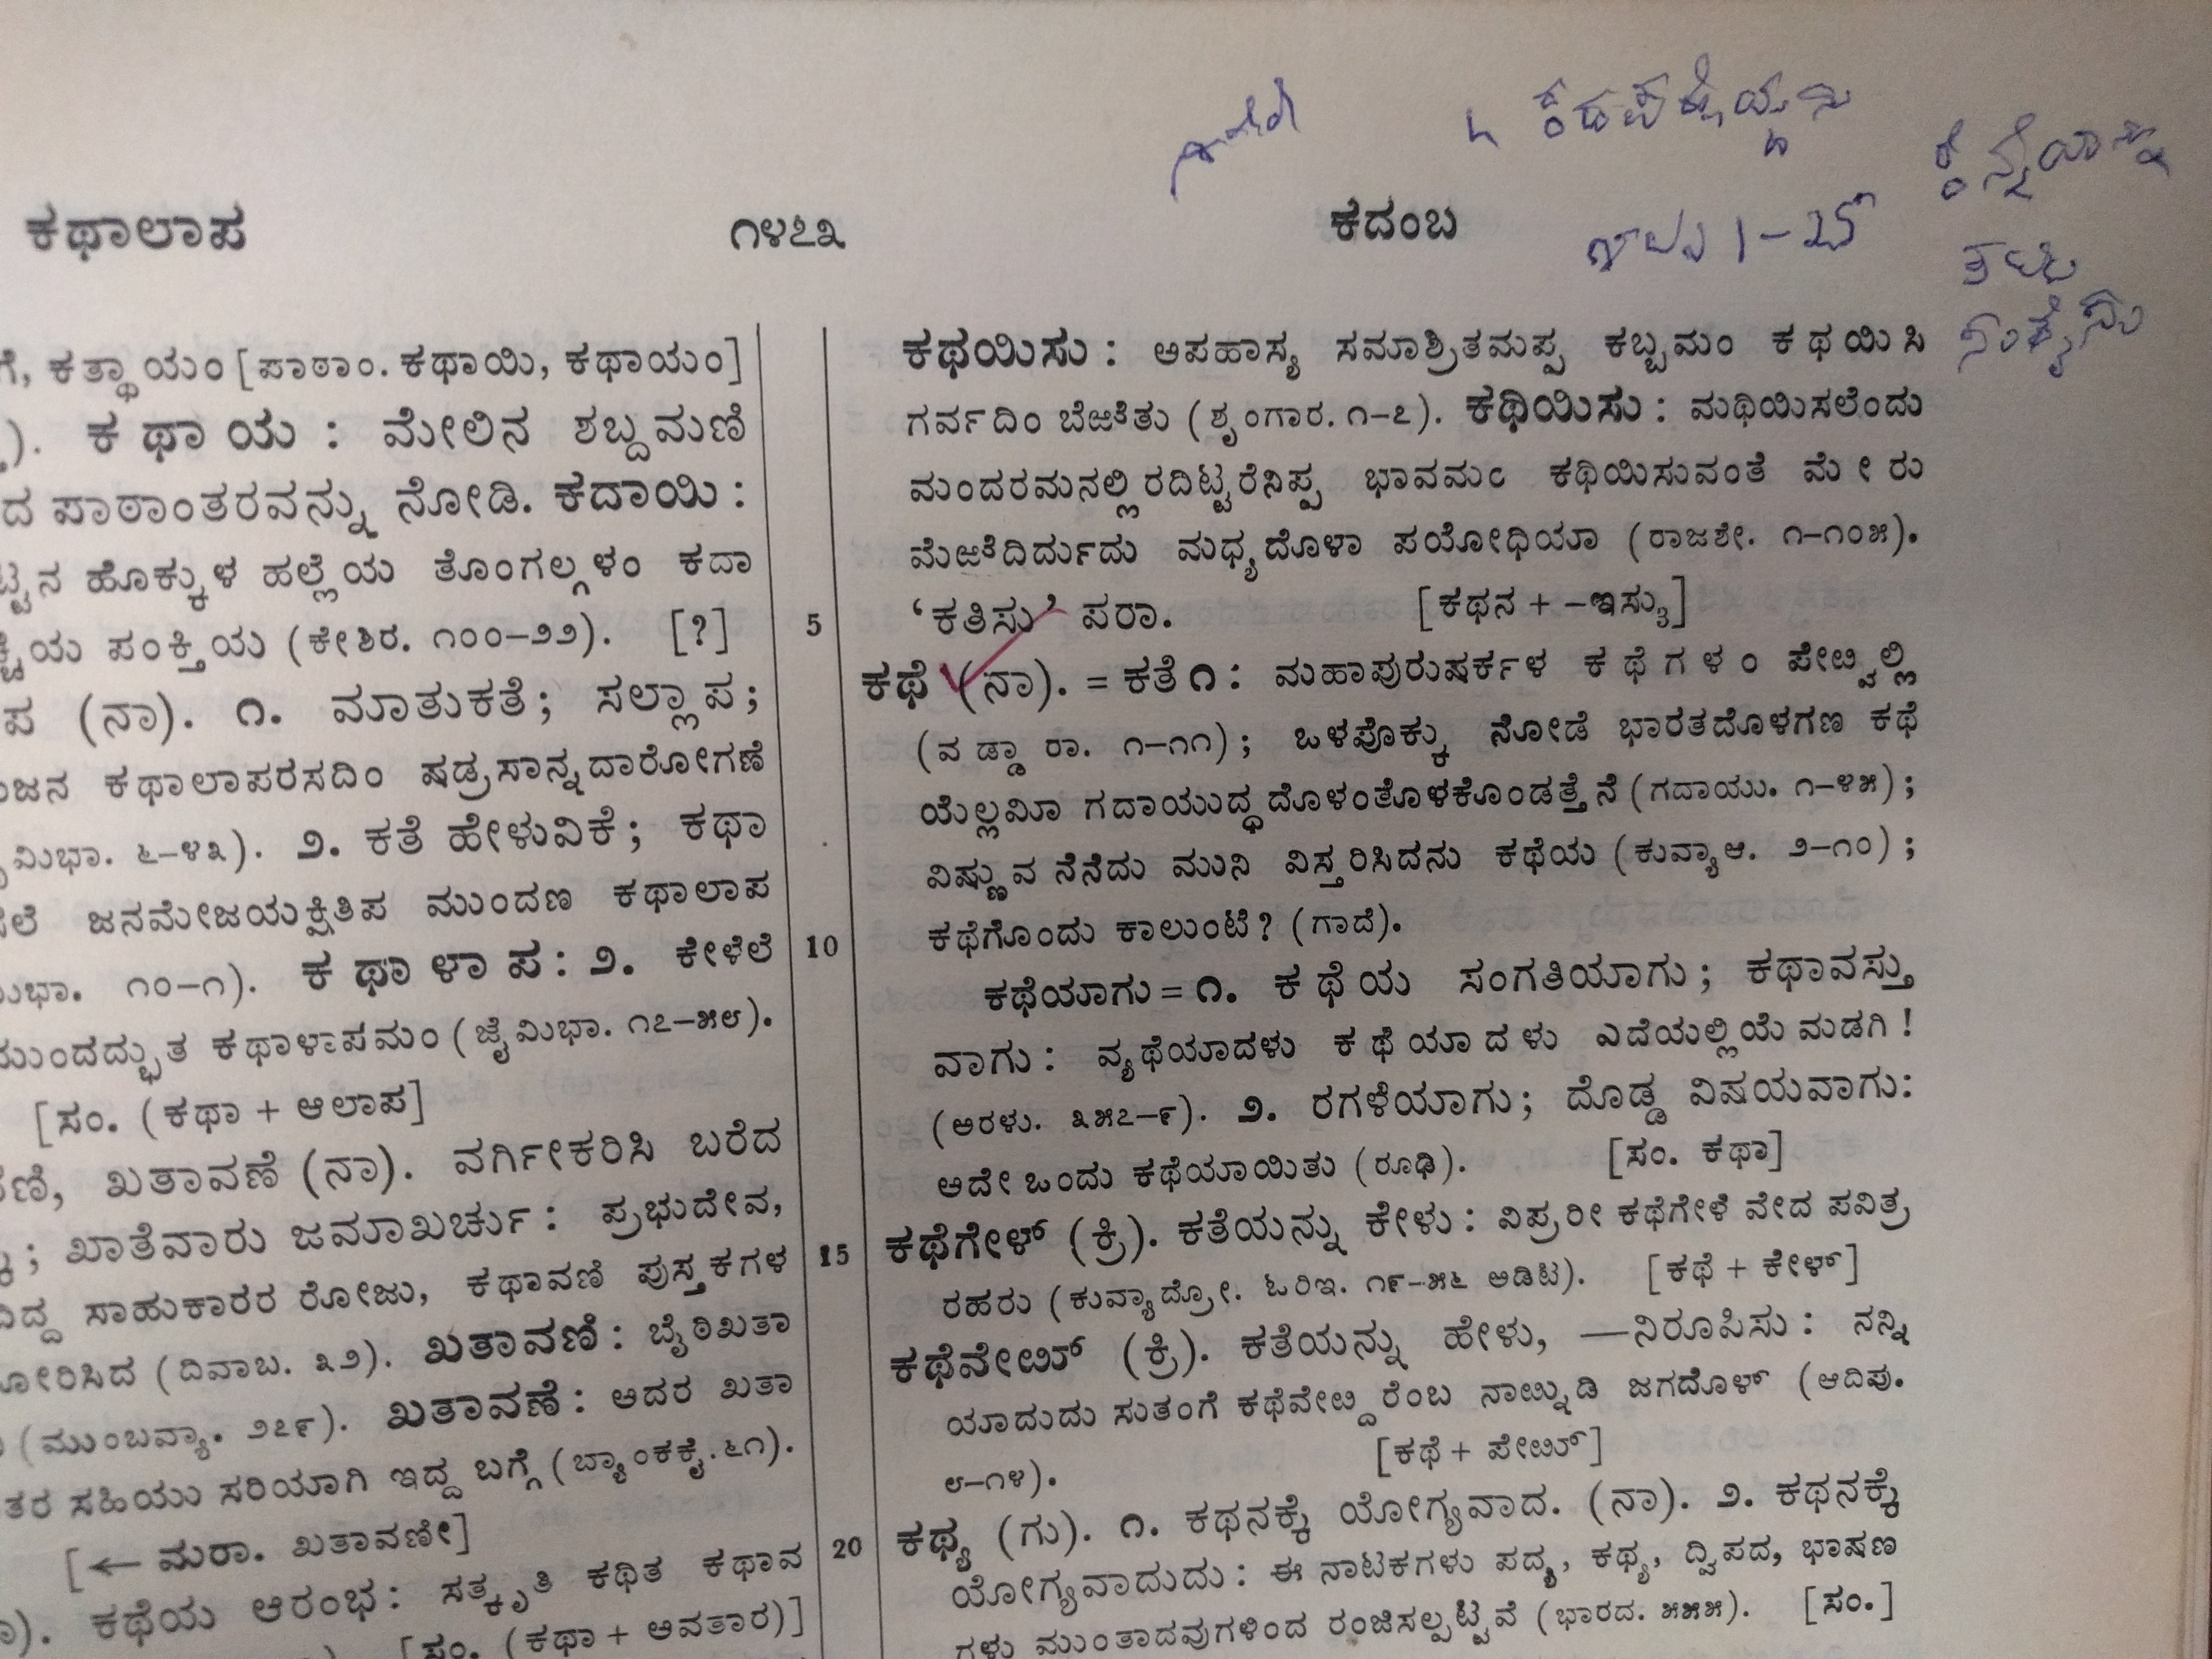 ಕಥಾಲಾಪ
೧೪೭೩
ಕದಂಬ
1-25
ಗೆ, ಕತ್ಥಾಯಂ [ಪಾಠಾಂ. ಕಥಾಯಿ, ಕಥಾಯಂ]
). ಕಥಾಯ : ಮೇಲಿನ ಶಬ್ದಮಣಿ
ದ ಪಾಠಾಂತರವನ್ನು ನೋಡಿ. ಕದಾಯಿ :
ಟ್ಟನ ಹೊಕ್ಕುಳ ಹಲ್ಲೆಯ ತೊಂಗಲ್ಗಳಂ ಕದಾ
ಯ ಪಂಕ್ತಿಯ (ಕೇಶಿರ. ೧೦೦-೨೨). [?]
ಪ (ನಾ). ೧. ಮಾತುಕತೆ; ಸಲ್ಲಾಪ;
ಜನ ಕಥಾಲಾಪರಸದಿಂ ಷಡ್ರಸಾನ್ನದಾರೋಗಣೆ
ಮಿಭಾ. ೬-೪೩). ೨. ಕತೆ ಹೇಳುವಿಕೆ; ಕಥಾ
ಲೆ ಜನಮೇಜಯಕ್ಷಿತಿಪ ಮುಂದಣ ಕಥಾಲಾಪ
ಭಾ. ೧೦-೧). ಕಥಾಳಾಪ: ೨. ಕೇಳೆಲೆ
ಮುಂದದ್ಭುತ ಕಥಾಳಾಪಮಂ (ಜೈಮಿಭಾ. ೧೭-೫೮).
[ಸಂ. (ಕಥಾ + ಆಲಾಪ]
ಣಿ, ಖತಾವಣೆ (ನಾ). ವರ್ಗೀಕರಿಸಿ ಬರೆದ
; ಖಾತೆವಾರು ಜಮಾಖರ್ಚು: ಪ್ರಭುದೇವ,
ದ್ದ ಸಾಹುಕಾರರ ರೋಜು, ಕಥಾವಣಿ ಪುಸ್ತಕಗಳ
ೋರಿಸಿದ (ದಿವಾಬ. ೩೨). ಖತಾವಣಿ: ಬೈಠಿಖತಾ
(ಮುಂಬವ್ಯಾ. ೨೭೯). ಖತಾವಣೆ: ಆದರ ಖತಾ
ತರ ಸಹಿಯು ಸರಿಯಾಗಿ ಇದ್ದ ಬಗ್ಗೆ (ಬ್ಯಾಂಕಕೈ. ೬೧).
[← ಮರಾ. ಖತಾವಣೀ]
). ಕಥೆಯ ಆರಂಭ: ಸತ್ಕೃತಿ ಕಥಿತ ಕಥಾವ
[ಸಂ. (ಕಥಾ + ಅವತಾರ)]
5
10
15
20
ಕಥಯಿಸು : ಅಪಹಾಸ್ಯ ಸಮಾಶ್ರಿತಮಪ್ಪ ಕಬ್ಬಮಂ ಕಥಯಿಸಿ
ಗರ್ವದಿಂ ಬೆಱತು (ಶೃಂಗಾರ. ೧-೭). ಕಥಿಯಿಸು : ಮಥಿಯಿಸಲೆಂದು
ಮಂದರಮನಲ್ಲಿರದಿಟ್ಟರೆನಿಪ್ಪ ಭಾವಮಂ ಕಥಿಯಿಸುವಂತೆ ಮೇರು
ಮೆಱೆದಿರ್ದುದು ಮಧ್ಯದೊಳಾ ಪಯೋಧಿಯಾ (ರಾಜಶೇ. ೧-೧೦೫).
‘ಕತಿಸು’ ಪರಾ. [ಕಥನ + -ಇಸು೩]
ಕಥೆ (ನಾ). = ಕತೆ ೧ : ಮಹಾಪುರುಷರ್ಕಳ ಕಥೆಗಳಂ ಪೇೞ್ವಲ್ಲಿ
(ವಡ್ಡಾರಾ. ೧-೧೧); ಒಳಪೊಕ್ಕು ನೋಡೆ ಭಾರತದೊಳಗಣ ಕಥೆ
ಯೆಲ್ಲಮೀ ಗದಾಯುದ್ಧದೊಳಂತೊಳಕೊಂಡತ್ತೆನೆ (ಗದಾಯು. ೧-೪೫);
ವಿಷ್ಣುವ ನೆನೆದು ಮುನಿ ವಿಸ್ತರಿಸಿದನು ಕಥೆಯ (ಕುವ್ಯಾಆ. ೨-೧೦);
ಕಥೆಗೊಂದು ಕಾಲುಂಟೆ? (ಗಾದೆ).
ಕಥೆಯಾಗು = ೧. ಕಥೆಯ ಸಂಗತಿಯಾಗು; ಕಥಾವಸ್ತು
ವಾಗು: ವ್ಯಥೆಯಾದಳು ಕಥೆಯಾದಳು ಎದೆಯಲ್ಲಿಯೆ ಮಡಗಿ!
(ಅರಳು. ೩೫೭-೯). ೨. ರಗಳೆಯಾಗು; ದೊಡ್ಡ ವಿಷಯವಾಗು:
ಅದೇ ಒಂದು ಕಥೆಯಾಯಿತು (ರೂಢಿ). [ಸಂ. ಕಥಾ]
ಕಥೆಗೇಳ್ (ಕ್ರಿ). ಕತೆಯನ್ನು ಕೇಳು: ವಿಪ್ರರೀ ಕಥೆಗೇಳೆ ವೇದ ಪವಿತ್ರ
ರಹರು (ಕುವ್ಯಾದ್ರೋ. ಓರಿಇ. ೧೯-೫೬ ಅಡಿಟಿ). [ಕಥೆ + ಕೇಳ್]
ಕಥೆವೇೞ್ (ಕ್ರಿ). ಕತೆಯನ್ನು ಹೇಳು, —ನಿರೂಪಿಸು: ನನ್ನಿ
ಯಾದುದು ಸುತಂಗೆ ಕಥೆವೇೞ್ದರೆಂಬ ನಾೞ್ನುಡಿ ಜಗದೊಳ್ (ಆದಿಪು.
೮-೧೪). [ಕಥೆ + ಪೇೞ್]
ಕಥ್ಯ (ಗು). ೧. ಕಥನಕ್ಕೆ ಯೋಗ್ಯವಾದ. (ನಾ). ೨. ಕಥನಕ್ಕೆ
ಯೋಗ್ಯವಾದುದು: ಈ ನಾಟಕಗಳು ಪದ್ಯ, ಕಥ್ಯ, ದ್ವಿಪದ, ಭಾಷಣ
ಗಳು ಮುಂತಾದವುಗಳಿಂದ ರಂಜಿಸಲ್ಪಟ್ಟವೆ (ಭಾರದ. ೫೫೫). [ಸಂ.]